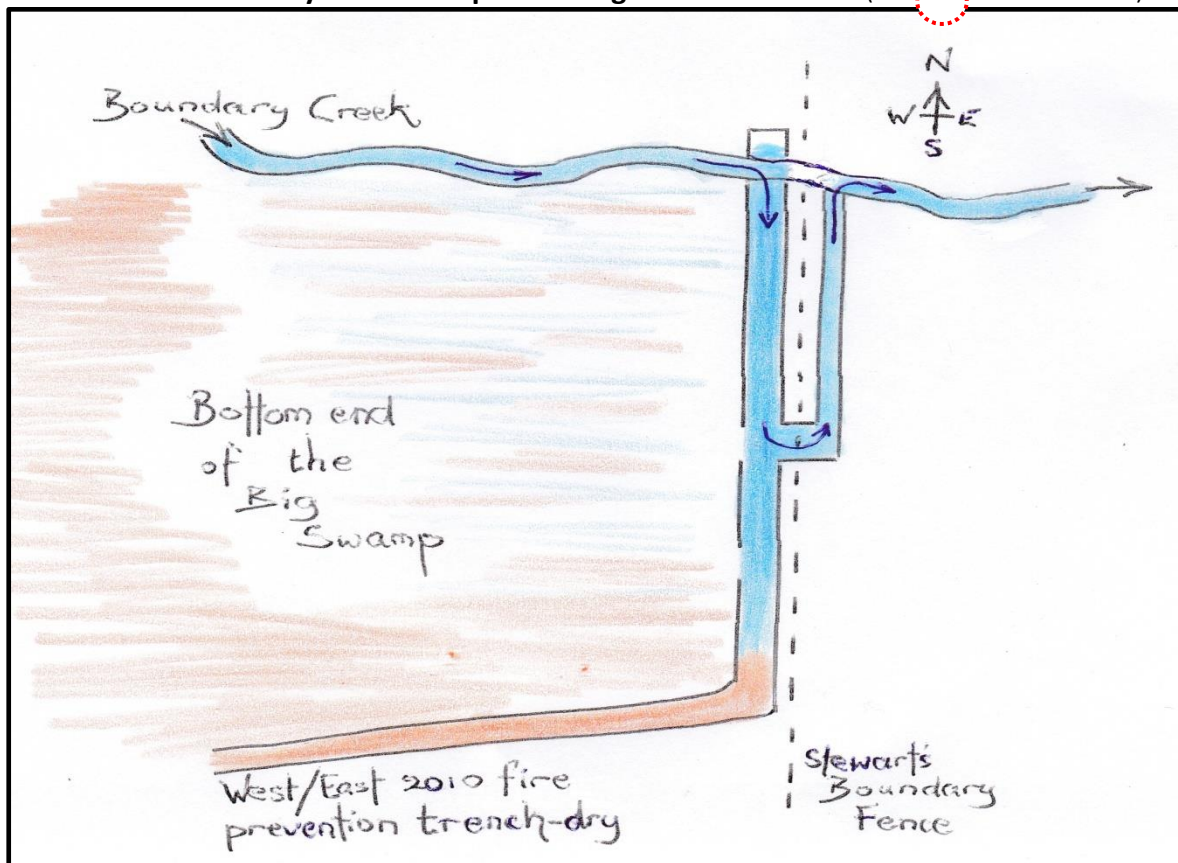 Boundary Creek
N
W E
S
Bottom end
of the
Big
Swamp
West/East 2010 fire
prevention trench-dry
Stewart's
Boundary
Fence